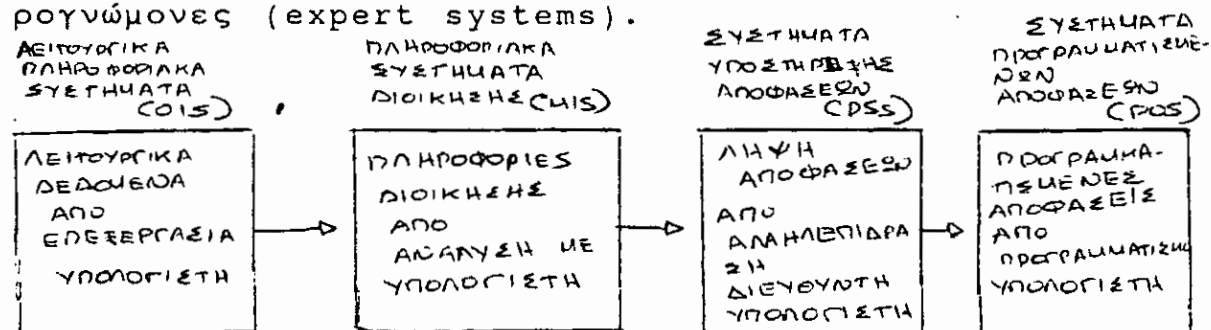 ρογνώμονες (expert systems).
ΛΕΙΤΟΥΡΓΙΚΑ
ΠΛΗΡΟΦΟΡΙΑΚΑ
ΣΥΣΤΗΜΑΤΑ
(OIS)
ΠΛΗΡΟΦΟΡΙΑΚΑ
ΣΥΣΤΗΜΑΤΑ
ΔΙΟΙΚΗΣΗΣ (MIS)
ΣΥΣΤΗΜΑΤΑ
ΥΠΟΣΤΗΡΙΞΗΣ
ΑΠΟΦΑΣΕΩΝ
(DSS)
ΣΥΣΤΗΜΑΤΑ
ΠΡΟΓΡΑΜΜΑΤΙΣΜΕ-
ΝΩΝ
ΑΠΟΦΑΣΕΩΝ
(PDS)
ΛΕΙΤΟΥΡΓΙΚΑ
ΔΕΔΟΜΕΝΑ
ΑΠΟ
ΕΠΕΞΕΡΓΑΣΙΑ
ΥΠΟΛΟΓΙΣΤΗ
ΠΛΗΡΟΦΟΡΙΕΣ
ΔΙΟΙΚΗΣΗΣ
ΑΠΟ
ΑΝΑΛΥΣΗ ΜΕ
ΥΠΟΛΟΓΙΣΤΗ
ΛΗΨΗ
ΑΠΟΦΑΣΕΩΝ
ΑΠΟ
ΑΛΛΗΛΕΠΙΔΡΑ
ΣΗ
ΔΙΕΥΘΥΝΤΗ
ΥΠΟΛΟΓΙΣΤΗ
ΠΡΟΓΡΑΜΜΑ-
ΤΙΣΜΕΝΕΣ
ΑΠΟΦΑΣΕΙΣ
ΑΠΟ
ΠΡΟΓΡΑΜΜΑΤΙΣΜΟ
ΥΠΟΛΟΓΙΣΤΗ